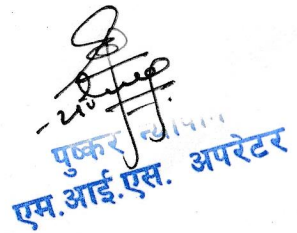 पुष्कर
एम.आई.एस. अपरेटर